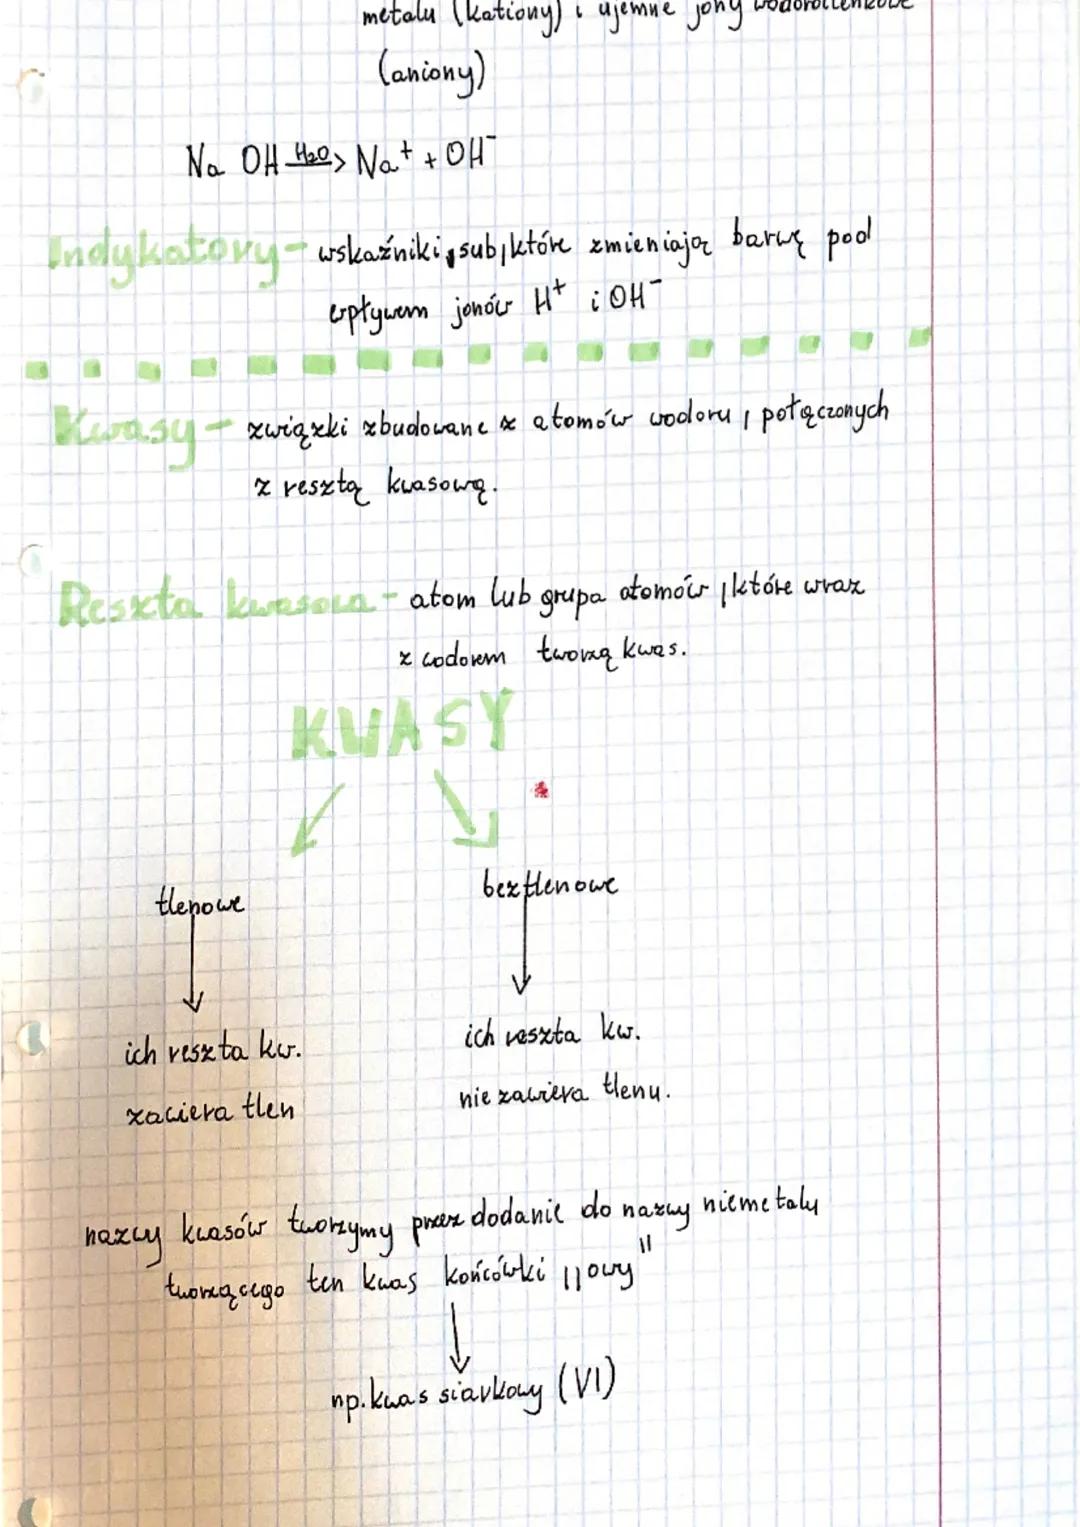 metalu (kationy) i ujemne jony wodorotlenkowe
(aniony)
Na OH H2O> Na+ + OH-
Indykatory - wskaźniki, sub, które zmieniają barwę pod
wpływem jonów H+ i OH-
Kwasy - związki zbudowane z atomów wodoru, połączonych
z resztą kwasową.
Reszta kwasowa - atom lub grupa atomów, które wraz
z wodorem tworzą kwas.
KWASY
tlenowe
beztlenowe
ich reszta kw.
zawiera tlen
ich reszta kw.
nie zawiera tlenu.
nazwy kwasów tworzymy przez dodanie do nazwy niemetalu
tworzącego ten kwas końcówki ,,owy"
np. kwas siarkowy (VI)